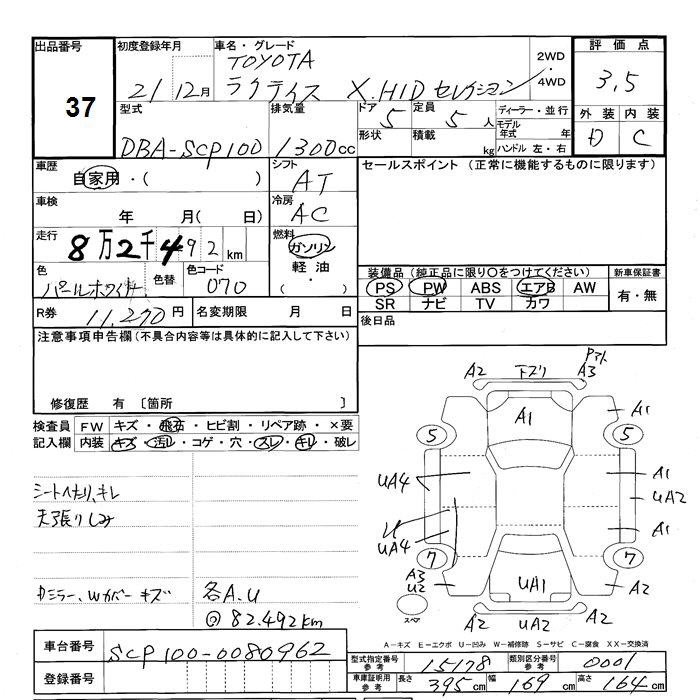 出品番号
37
初度登録年月
21 12月
車名・グレード
TOYOTA
ラクティス X.HIDセレクション
2WD
・
4WD
評価点
3.5
外装 内装
D C
型式
DBA-SCP100
排気量
1300cc
ドア
5
定員
5人
形状
積載
kg
ディーラー・並行
モデル年式 年
ハンドル 左・右
車歴
自家用・( )
シフト
AT
車検
年 月( 日)
冷房
AC
走行
8万2千492km
燃料
ガソリン
軽油
( ・ )
色
パールホワイト
色替
色コード
070
R券
11,270円
名変期限 月 日
セールスポイント (正常に機能するものに限ります)
装備品 (純正品に限り○をつけてください)
PS PW ABS エアB AW
SR ナビ TV カワ
新車保証書
有・無
後日品
注意事項申告欄(不具合内容等は具体的に記入して下さい)
修復歴 有 〔箇所 〕
検査員記入欄
FW キズ・飛石・ヒビ割・リペア跡・×要
内装 キズ・汚レ・コゲ・穴・スレ・キレ・破レ
シートへたり、キレ
天張りしみ
カミラー、Wカバー キズ
各A.U
@ 82.492km
A2 下ズリ A3
A1 A1
5 5
UA4 A1
UA2
U
UA4 A1
7 7
A3
U2 UA1 A2
A2 UA2 A2
スペア
A-キズ E-エクボ U-凹み W-補修跡 S-サビ C-腐食 XX-交換済
車台番号
SCP100-0080962
登録番号
型式指定番号
参考
15178
類別区分番号
参考
0001
車庫証明用
参考
長さ 395cm
幅 169cm
高さ 164cm